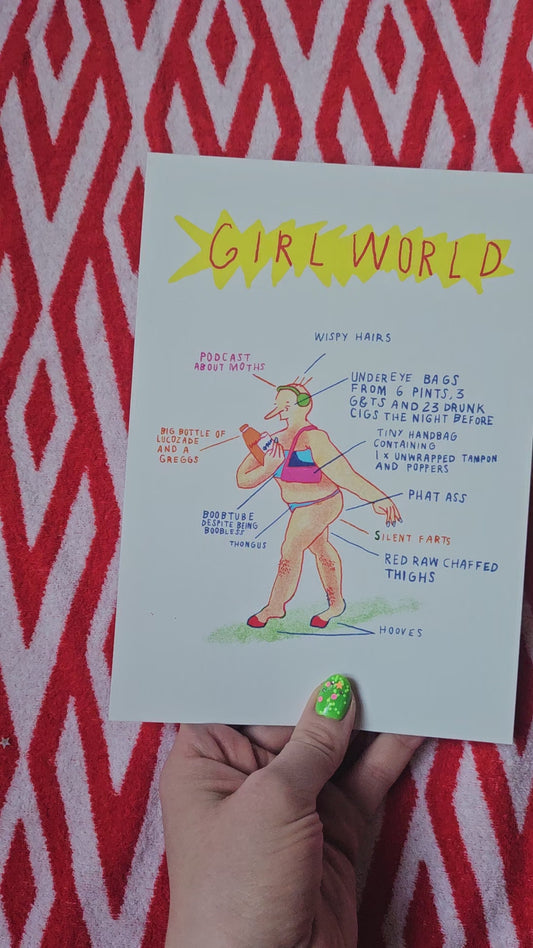 GIRL WORLD
WISPY HAIRS
PODCAST
ABOUT MOTHS
UNDEREYE BAGS
FROM 6 PINTS, 3
G&TS AND 23 DRUNK
CIGS THE NIGHT BEFORE
BIG BOTTLE OF
LUCOZADE
AND A
GREGGS
TINY HANDBAG
CONTAINING
1 x UNWRAPPED TAMPON
AND POPPERS
PHAT ASS
BOOBTUBE
DESPITE BEING
BOOBLESS
THONGUS
SILENT FARTS
RED RAW CHAFFED
THIGHS
HOOVES